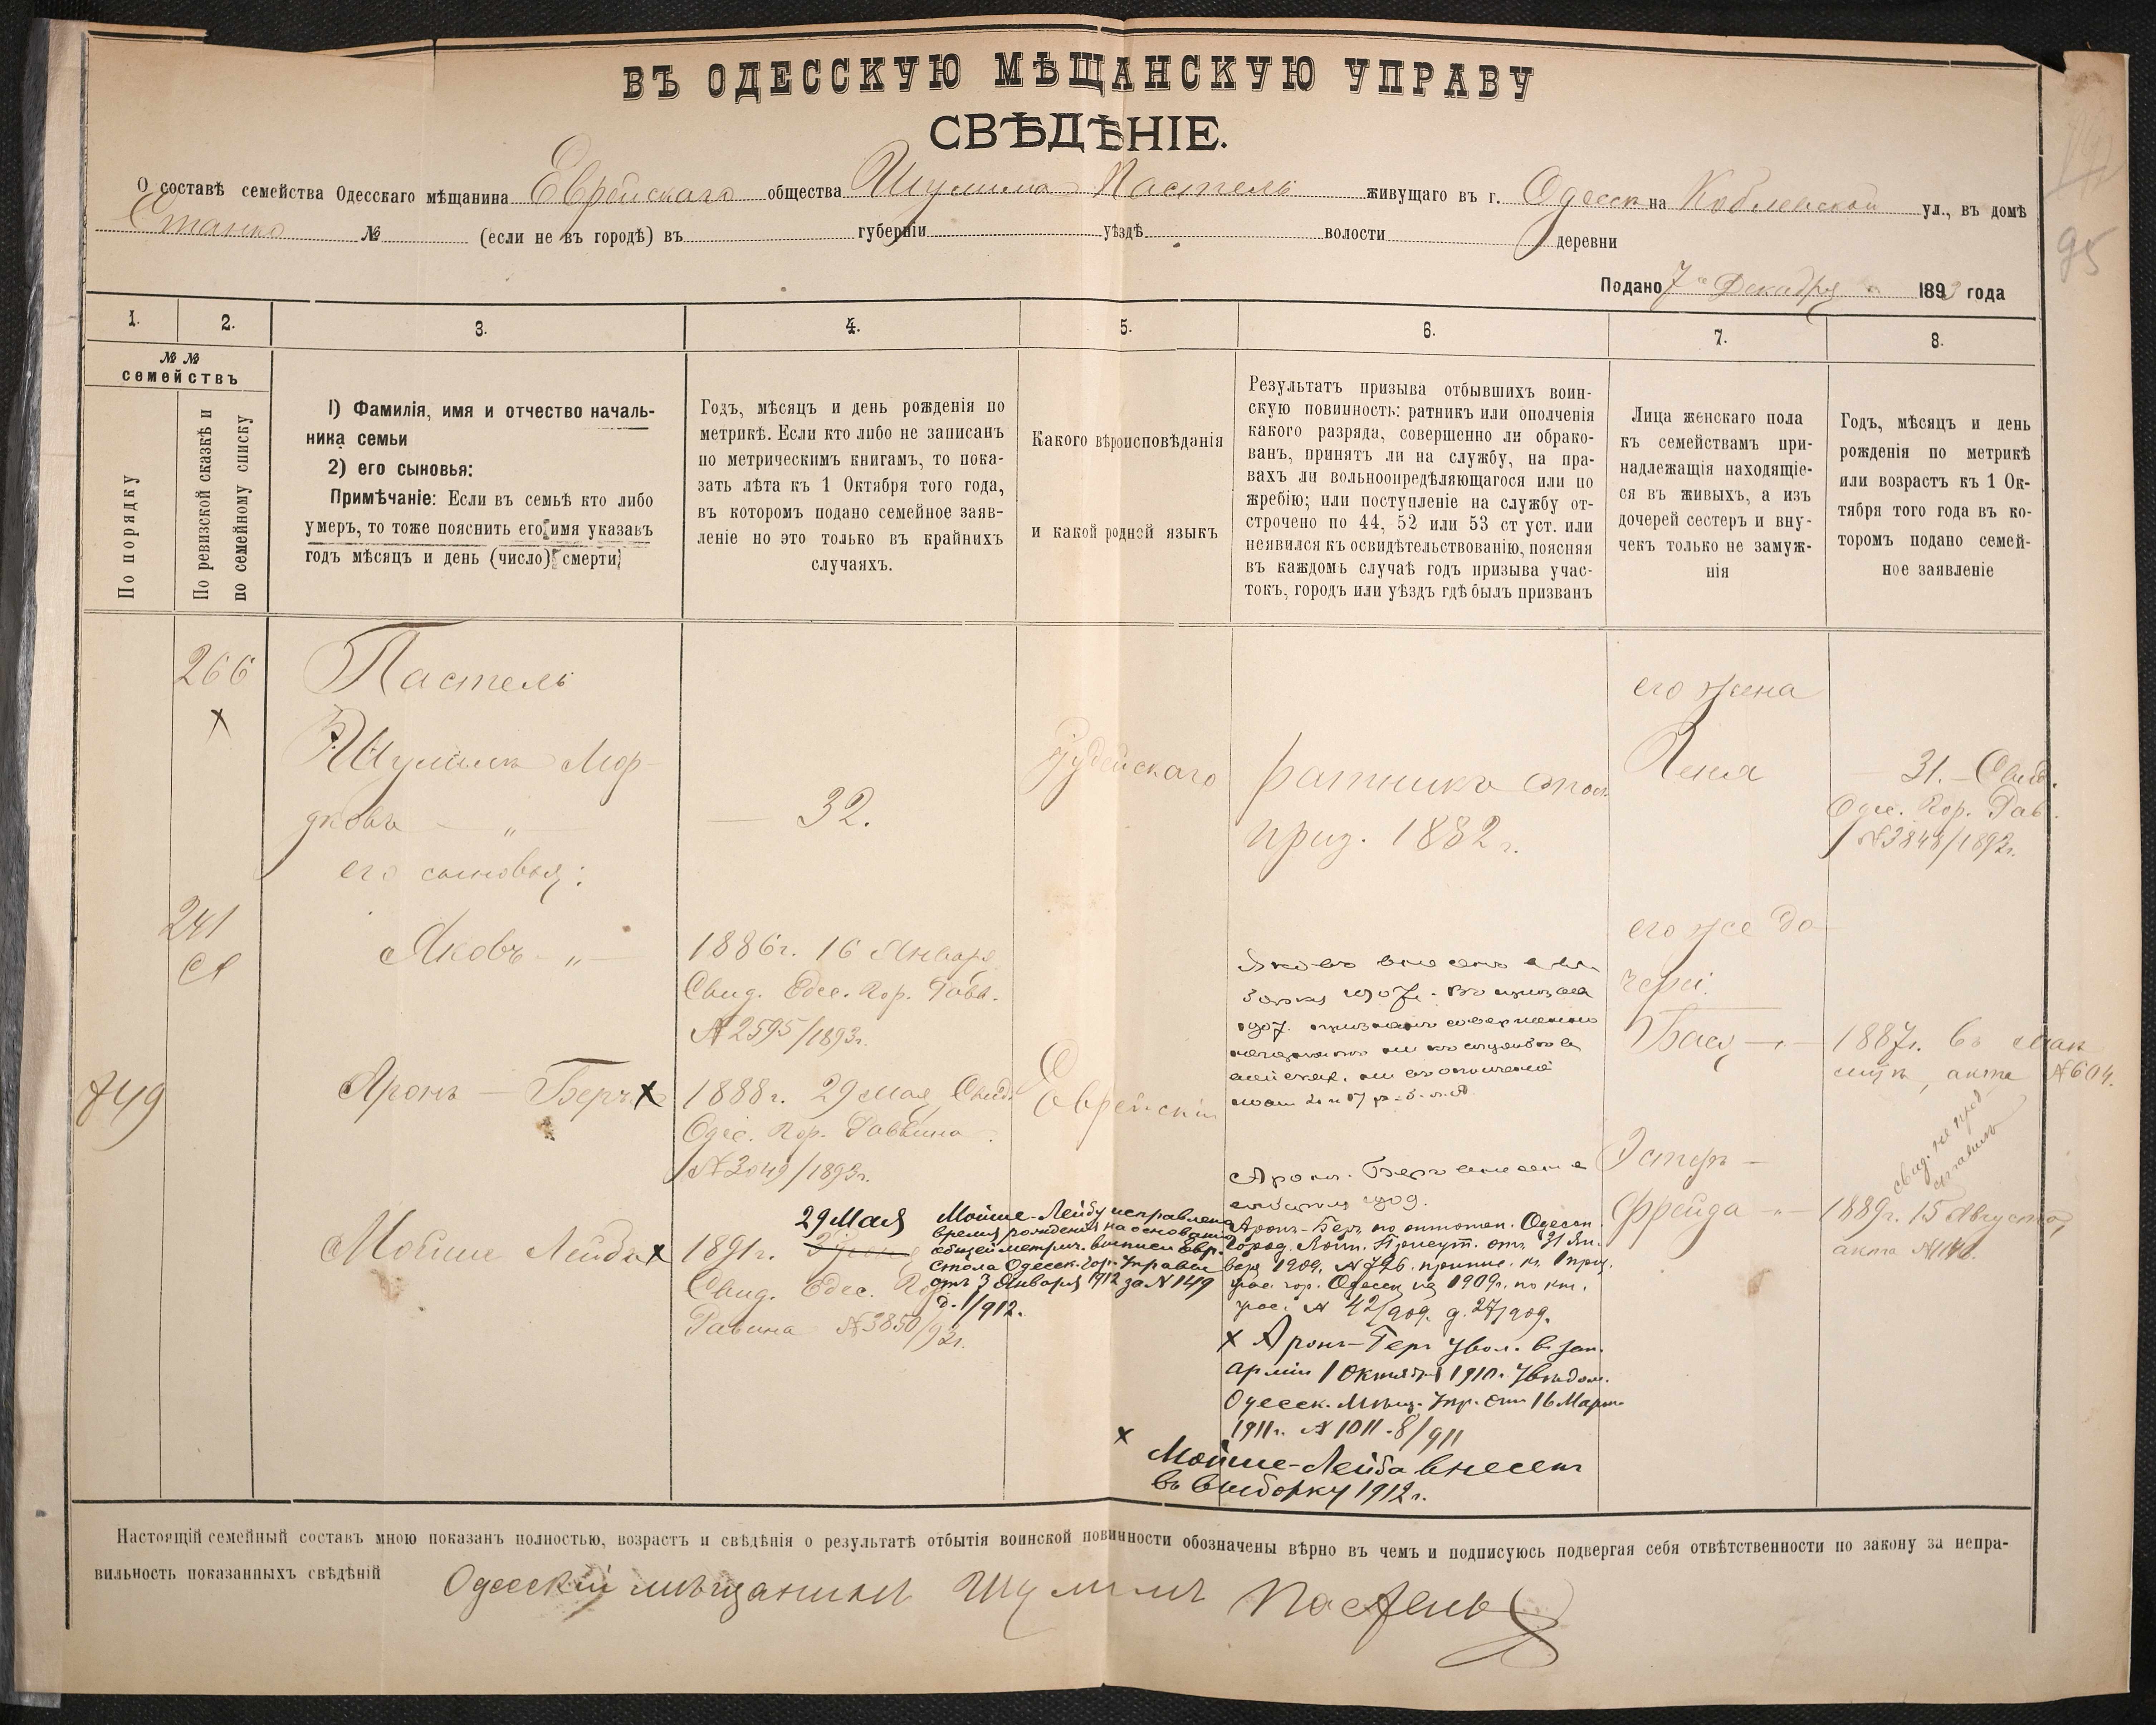 ВЪ ОДЕССКУЮ МѢЩАНСКУЮ УПРАВУ
СВѢДѢНІЕ.
О составѣ семейства Одесскаго мѣщанина Еврейскаго общества Шулима Пастель живущаго въ г. Одессѣ на Коблевской ул., въ домѣ
№ (если не въ городѣ) въ губерніи уѣздѣ волости деревни
Подано 7го Декабря 1893 года
95
1. 2. 3. 4. 5. 6. 7. 8.
№ №
семействъ
По порядку
По ревизской сказкѣ и
по семейному списку
1) Фамилія, имя и отчество началь-
ника семьи
2) его сыновья:
Примѣчаніе: Если въ семьѣ кто либо
умеръ, то тоже пояснить его имя указавъ
годъ мѣсяцъ и день (число) смерти
Годъ, мѣсяцъ и день рожденія по
метрикѣ. Если кто либо не записанъ
по метрическимъ книгамъ, то пока-
зать лѣта къ 1 Октября того года,
въ которомъ подано семейное заяв-
леніе но это только въ крайнихъ
случаяхъ.
Какого вѣроисповѣданія
и какой родной языкъ
Результатъ призыва отбывшихъ воин-
скую повинность: ратникъ или ополченія
какого разряда, совершенно ли обрако-
ванъ, принятъ ли на службу, на пра-
вахъ ли вольноопредѣляющагося или по
жребію; или поступленіе на службу от-
строчено по 44, 52 или 53 ст уст. или
неявился къ освидѣтельствованію, поясняя
въ каждомъ случаѣ годъ призыва учас-
токъ, городъ или уѣздъ гдѣ былъ призванъ
Лица женскаго пола
къ семействамъ при-
надлежащія находящіе-
ся въ живыхъ, а изъ
дочерей сестеръ и вну-
чекъ только не замуж-
нія
Годъ, мѣсяцъ и день
рожденія по метрикѣ
или возрастъ къ 1 Ок-
тября того года въ ко-
торомъ подано семей-
ное заявленіе
266
х
Пастель
Шулимъ Мор-
дковъ — „ —
его сыновья:
— 32.
Іудейскаго
ратникъ опол.
приз. 1882 г.
его жена
Хеня
31. — Свид.
Одес. Гор. Рав.
№3848/1893г.
241
Яковъ — „ —
1886г. 16 Января
Свид. Одес. Гор. Равв.
№ 2595/1893г.
Яковъ внесенъ въ вы-
борку 1907г. Въ призывъ
1907. признанъ совершенно
его же до-
чери:
Бася — „ —
1887г. 6
акта №604.
849
Аронъ — Беръ х
1888г. 29 Мая Свид.
Одес. Гор. Раввина
№3049/1893г.
Еврейскій
Аронъ-Беръ внесенъ въ
выборку 1909.
Эстеръ —
Фрейда — „ —
свид. не пред-
ставилъ
1889г. 15 Августа,
акта
Мойше Лейба х
29 Мая
1891г.
Свид. Одес. Гор.
Равина №3850/93г.
Мойше-Лейбу исправлено
время рожденія на основаніи
метрич. выписи Евр.
стола Одесск. Гор. Управы
отъ 3 Января 1912 за № 149
д. 1/912.
Аронъ-Беръ по Одесск.
Город. Воин. Присут. отъ 31 Ян-
варя 1909, къ 1 приз.
учас. гор. Одессы на 1909г.
учас. № 42/909. д. 27/909.
х Аронъ-Беръ увол. въ зап.
арміи 1 Октября 1910. Увѣдом.
Одесск. Мѣщ. Упр. отъ 16 Марта
1911г. № 1011. 8/911
х Мойше-Лейба внесенъ
въ выборку 1912г.
Настоящій семейный составъ мною показанъ полностью, возрастъ и свѣдѣнія о результатѣ отбытія воинской повинности обозначены вѣрно въ чемъ и подписуюсь подвергая себя отвѣтственности по закону за непра-
вильность показанныхъ свѣдѣній Одесскій мѣщанинъ Шулимъ Пастель